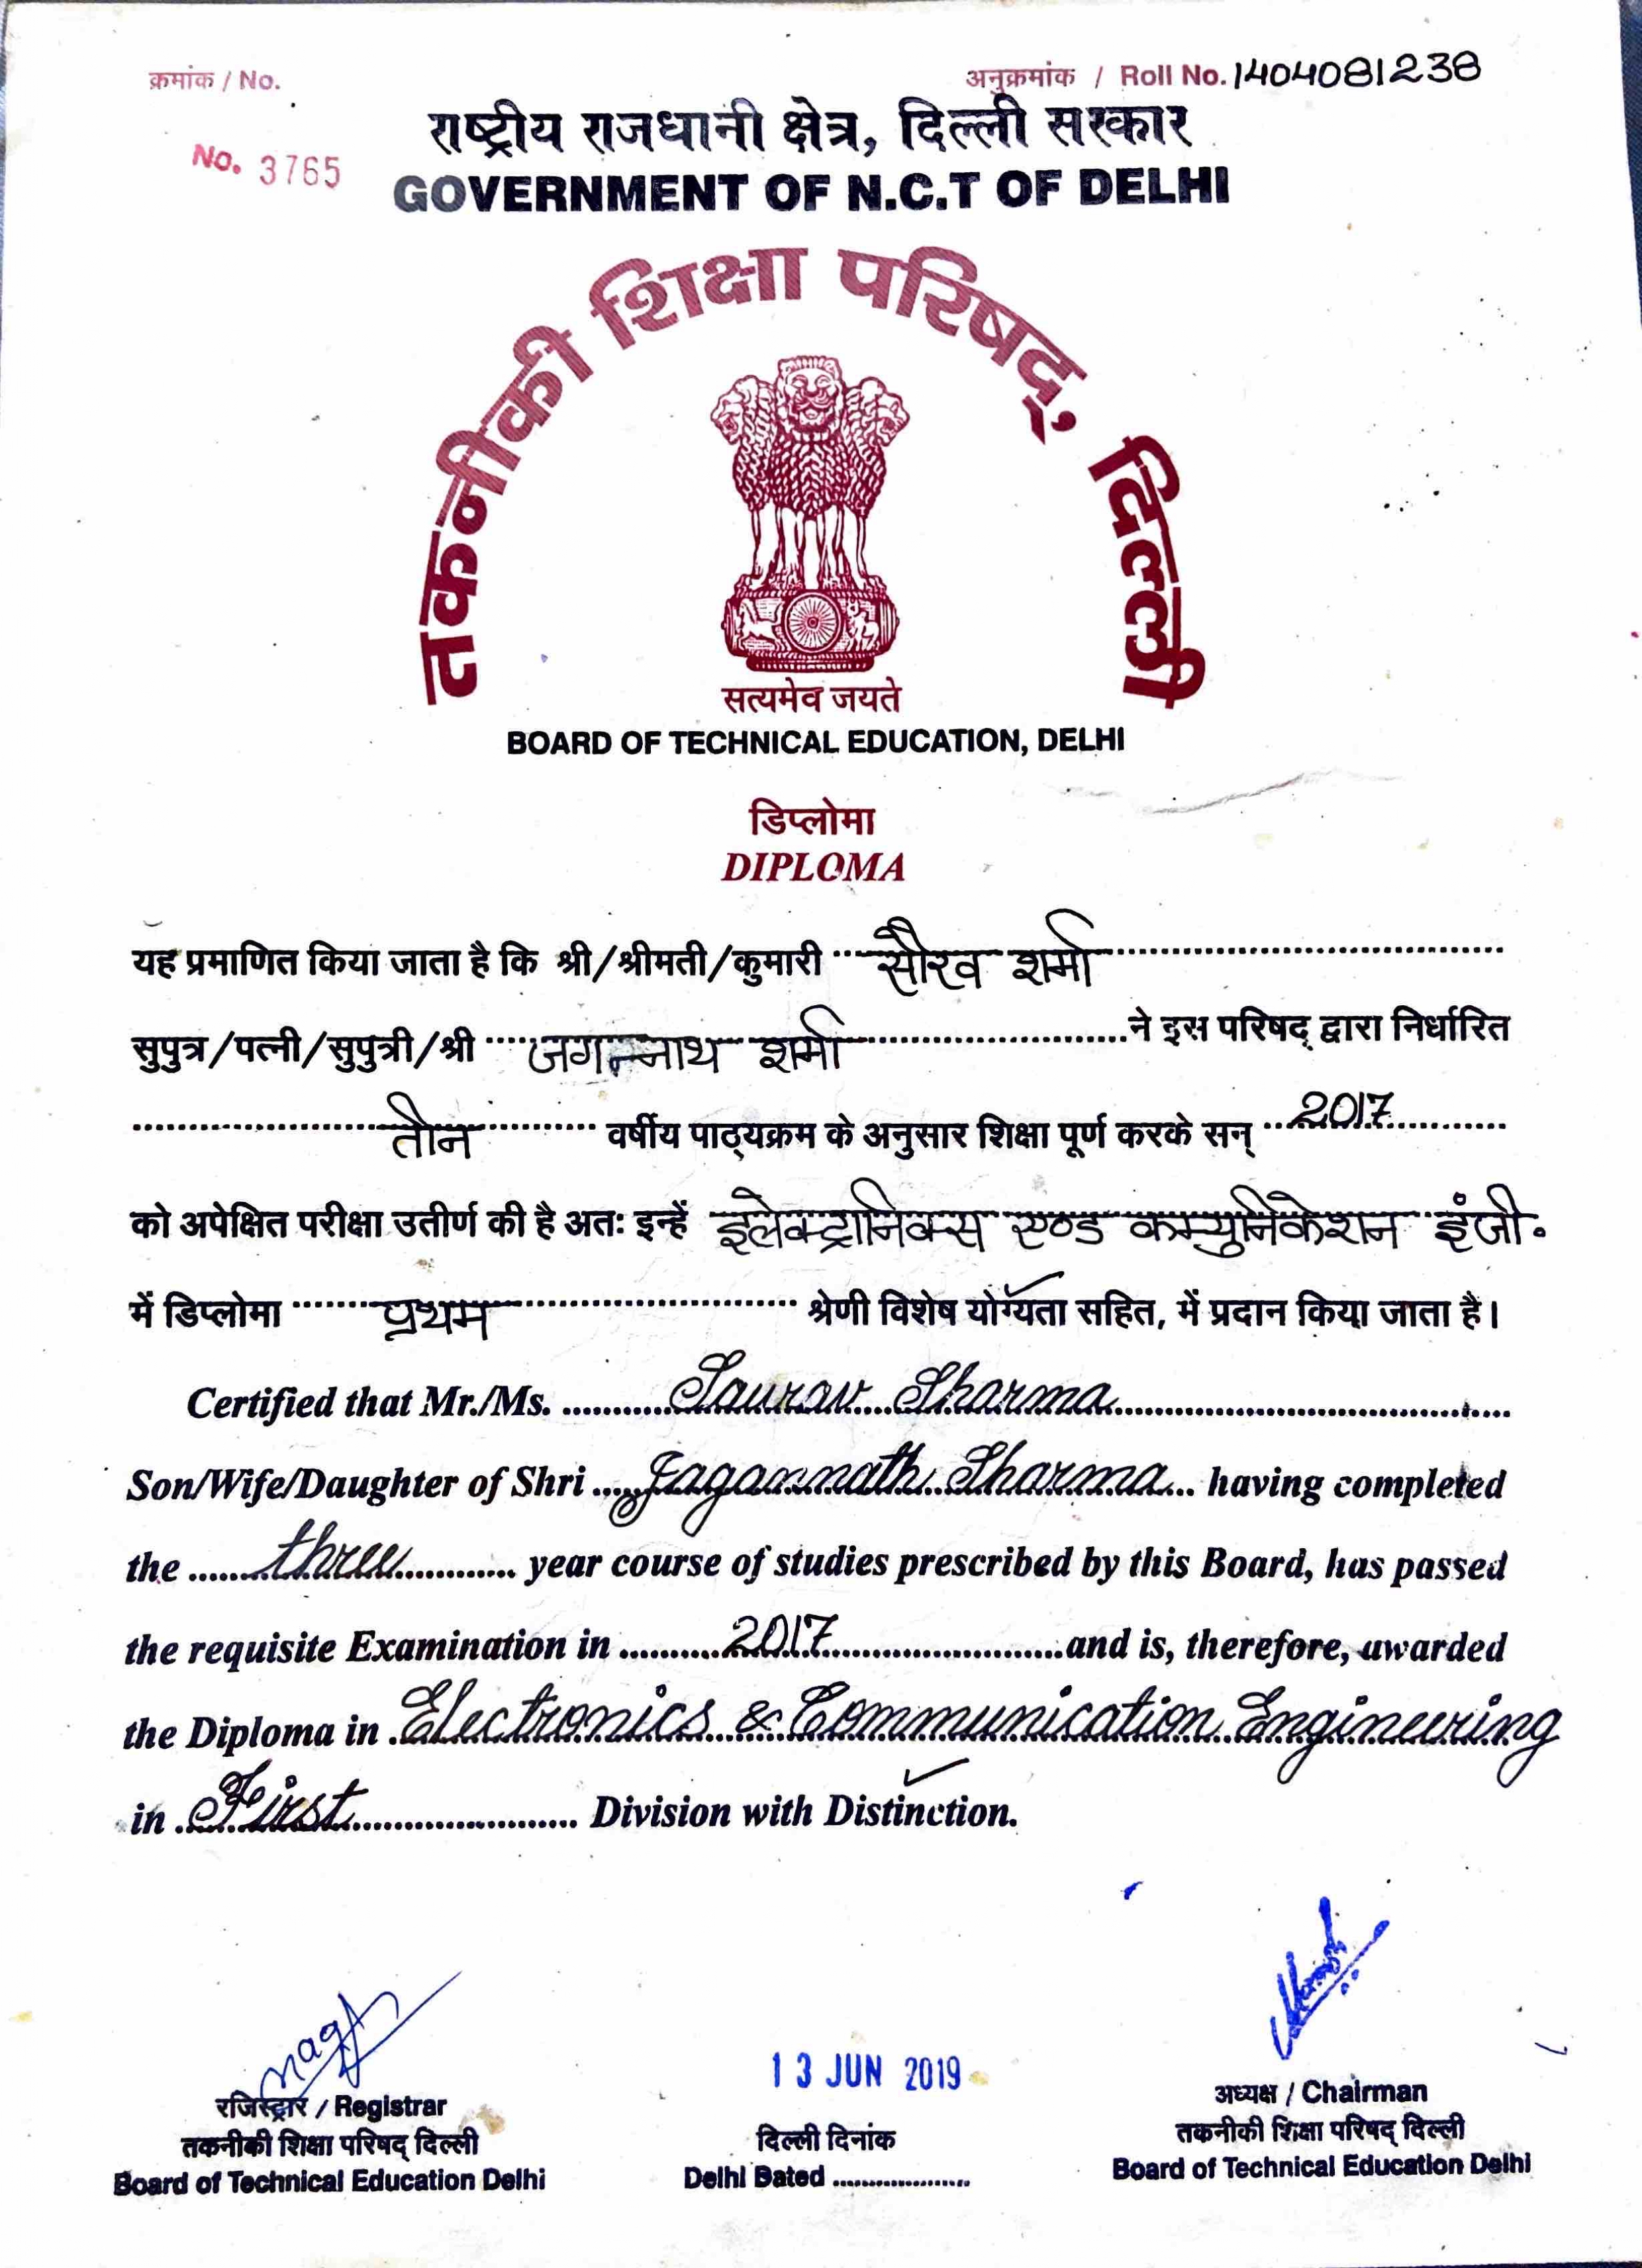 क्रमांक / No.
अनुक्रमांक / Roll No. 1404081238
राष्ट्रीय राजधानी क्षेत्र, दिल्ली सरकार
No. 3765
GOVERNMENT OF N.C.T OF DELHI
तकनीकी शिक्षा परिषद्, दिल्ली
सत्यमेव जयते
BOARD OF TECHNICAL EDUCATION, DELHI
डिप्लोमा
DIPLOMA
यह प्रमाणित किया जाता है कि श्री/श्रीमती/कुमारी सौरव शर्मा
सुपुत्र/पत्नी/सुपुत्री/श्री जगन्नाथ शर्मा ने इस परिषद् द्वारा निर्धारित
तीन वर्षीय पाठ्यक्रम के अनुसार शिक्षा पूर्ण करके सन् 2017
को अपेक्षित परीक्षा उतीर्ण की है अतः इन्हें इलेक्ट्रानिक्स एण्ड कम्युनिकेशन इंजी.
में डिप्लोमा प्रथम श्रेणी विशेष योग्यता सहित, में प्रदान किया जाता है।
Certified that Mr./Ms. Saurav Sharma
Son/Wife/Daughter of Shri Jagannath Sharma having completed
the three year course of studies prescribed by this Board, has passed
the requisite Examination in 2017 and is, therefore, awarded
the Diploma in Electronics & Communication Engineering
in First Division with Distinction.
13 JUN 2019
रजिस्ट्रार / Registrar
तकनीकी शिक्षा परिषद् दिल्ली
Board of Technical Education Delhi
दिल्ली दिनांक
Delhi Dated
अध्यक्ष / Chairman
तकनीकी शिक्षा परिषद् दिल्ली
Board of Technical Education Delhi